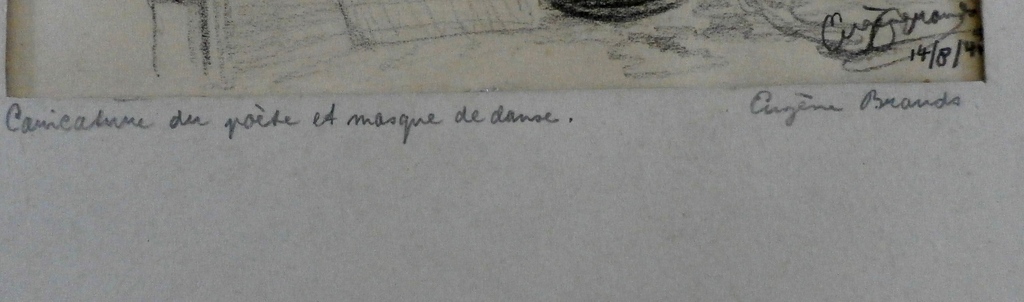 14/8/4
Caricature du poète et masque de danse.
Eugène Brands